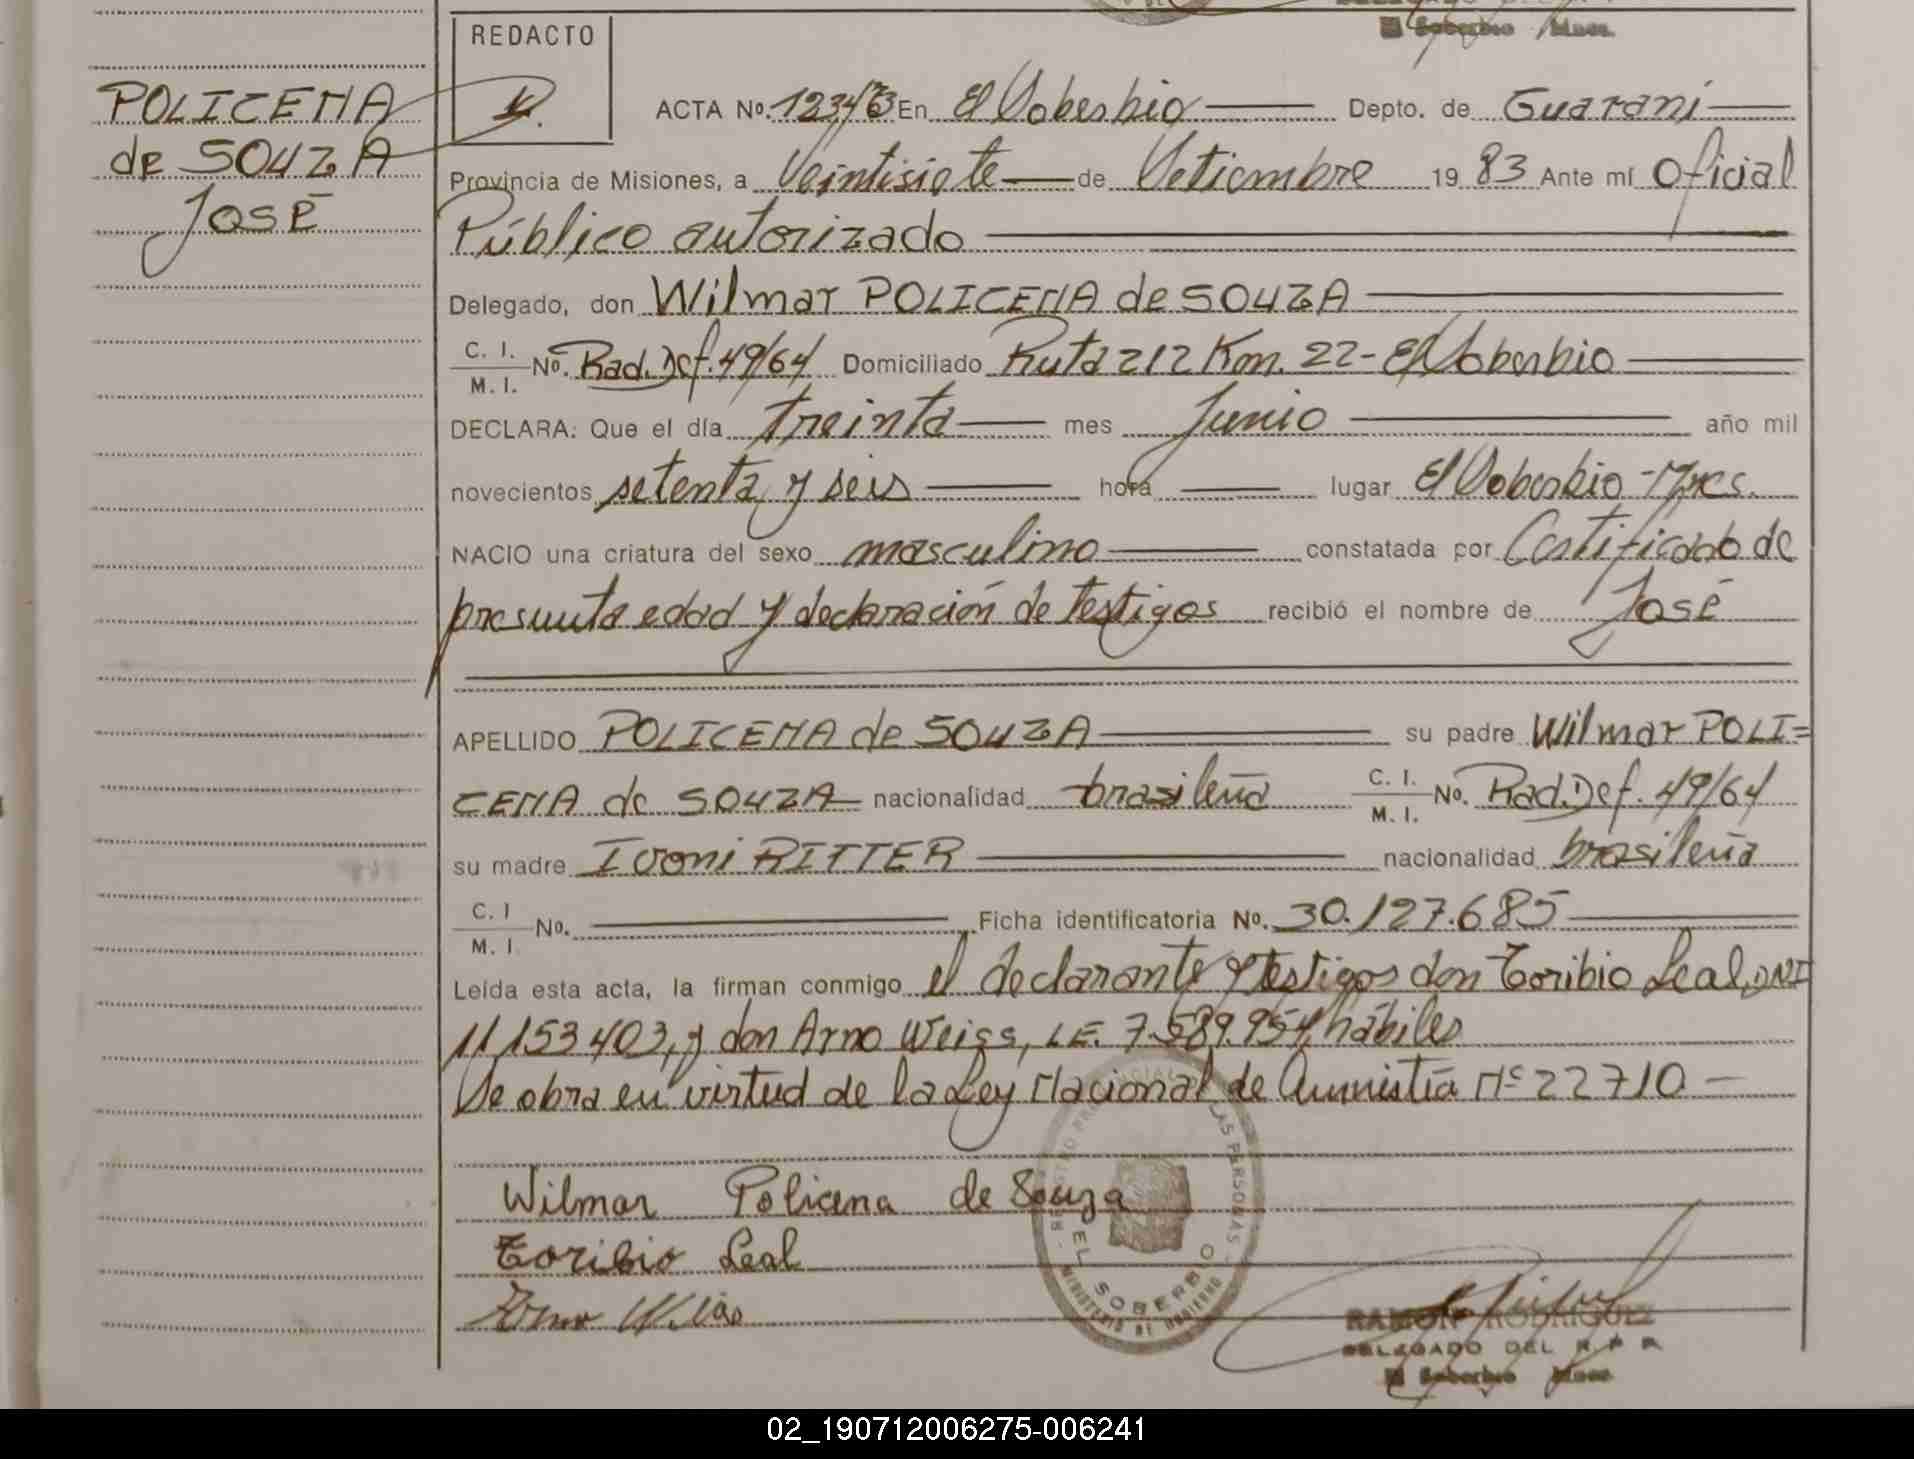 El Soberbio Mnes.
REDACTO
POLICENA
de SOUZA
JOSÉ
ACTA Nº. En El Soberbio Depto. de Guaraní
Provincia de Misiones, a Veintisiete de Setiembre 19 83 Ante mí Oficial
Público autorizado
Delegado, don Wilmar POLICENA de SOUZA
C. I.
M. I. Nº. Rad. Def. 49/64 Domiciliado Ruta 212 Km. 22 - El Soberbio
DECLARA: Que el día treinta mes Junio año mil
novecientos setenta y seis hora lugar El Soberbio - Mnes.
NACIO una criatura del sexo masculino constatada por Certificado de
presunta edad y declaración de testigos recibió el nombre de José
APELLIDO POLICENA de SOUZA su padre Wilmar POLI=
CENA de SOUZA nacionalidad brasileña C. I.
M. I. Nº. Rad. Def. 49/64
su madre Ivoni RITTER nacionalidad brasileña
C. I
M. I. Nº. Ficha identificatoria Nº. 30.127.685
Leída esta acta, la firman conmigo el declarante y testigos don Toribio Leal, DNI
11.153.403, y don Arno Weiss, L.E. 7.589.954, hábiles
Se obra en virtud de la Ley Nacional de Amnistía Nº 22710 -
Wilmar Policena de Souza
Toribio Leal
Arno Weiss
REGISTRO PROVINCIAL DE LAS PERSONAS
EL SOBERBIO
MINISTERIO DE GOBIERNO
RAMON RODRIGUEZ
DELEGADO DEL R P P
El Soberbio Mnes.
02_190712006275-006241